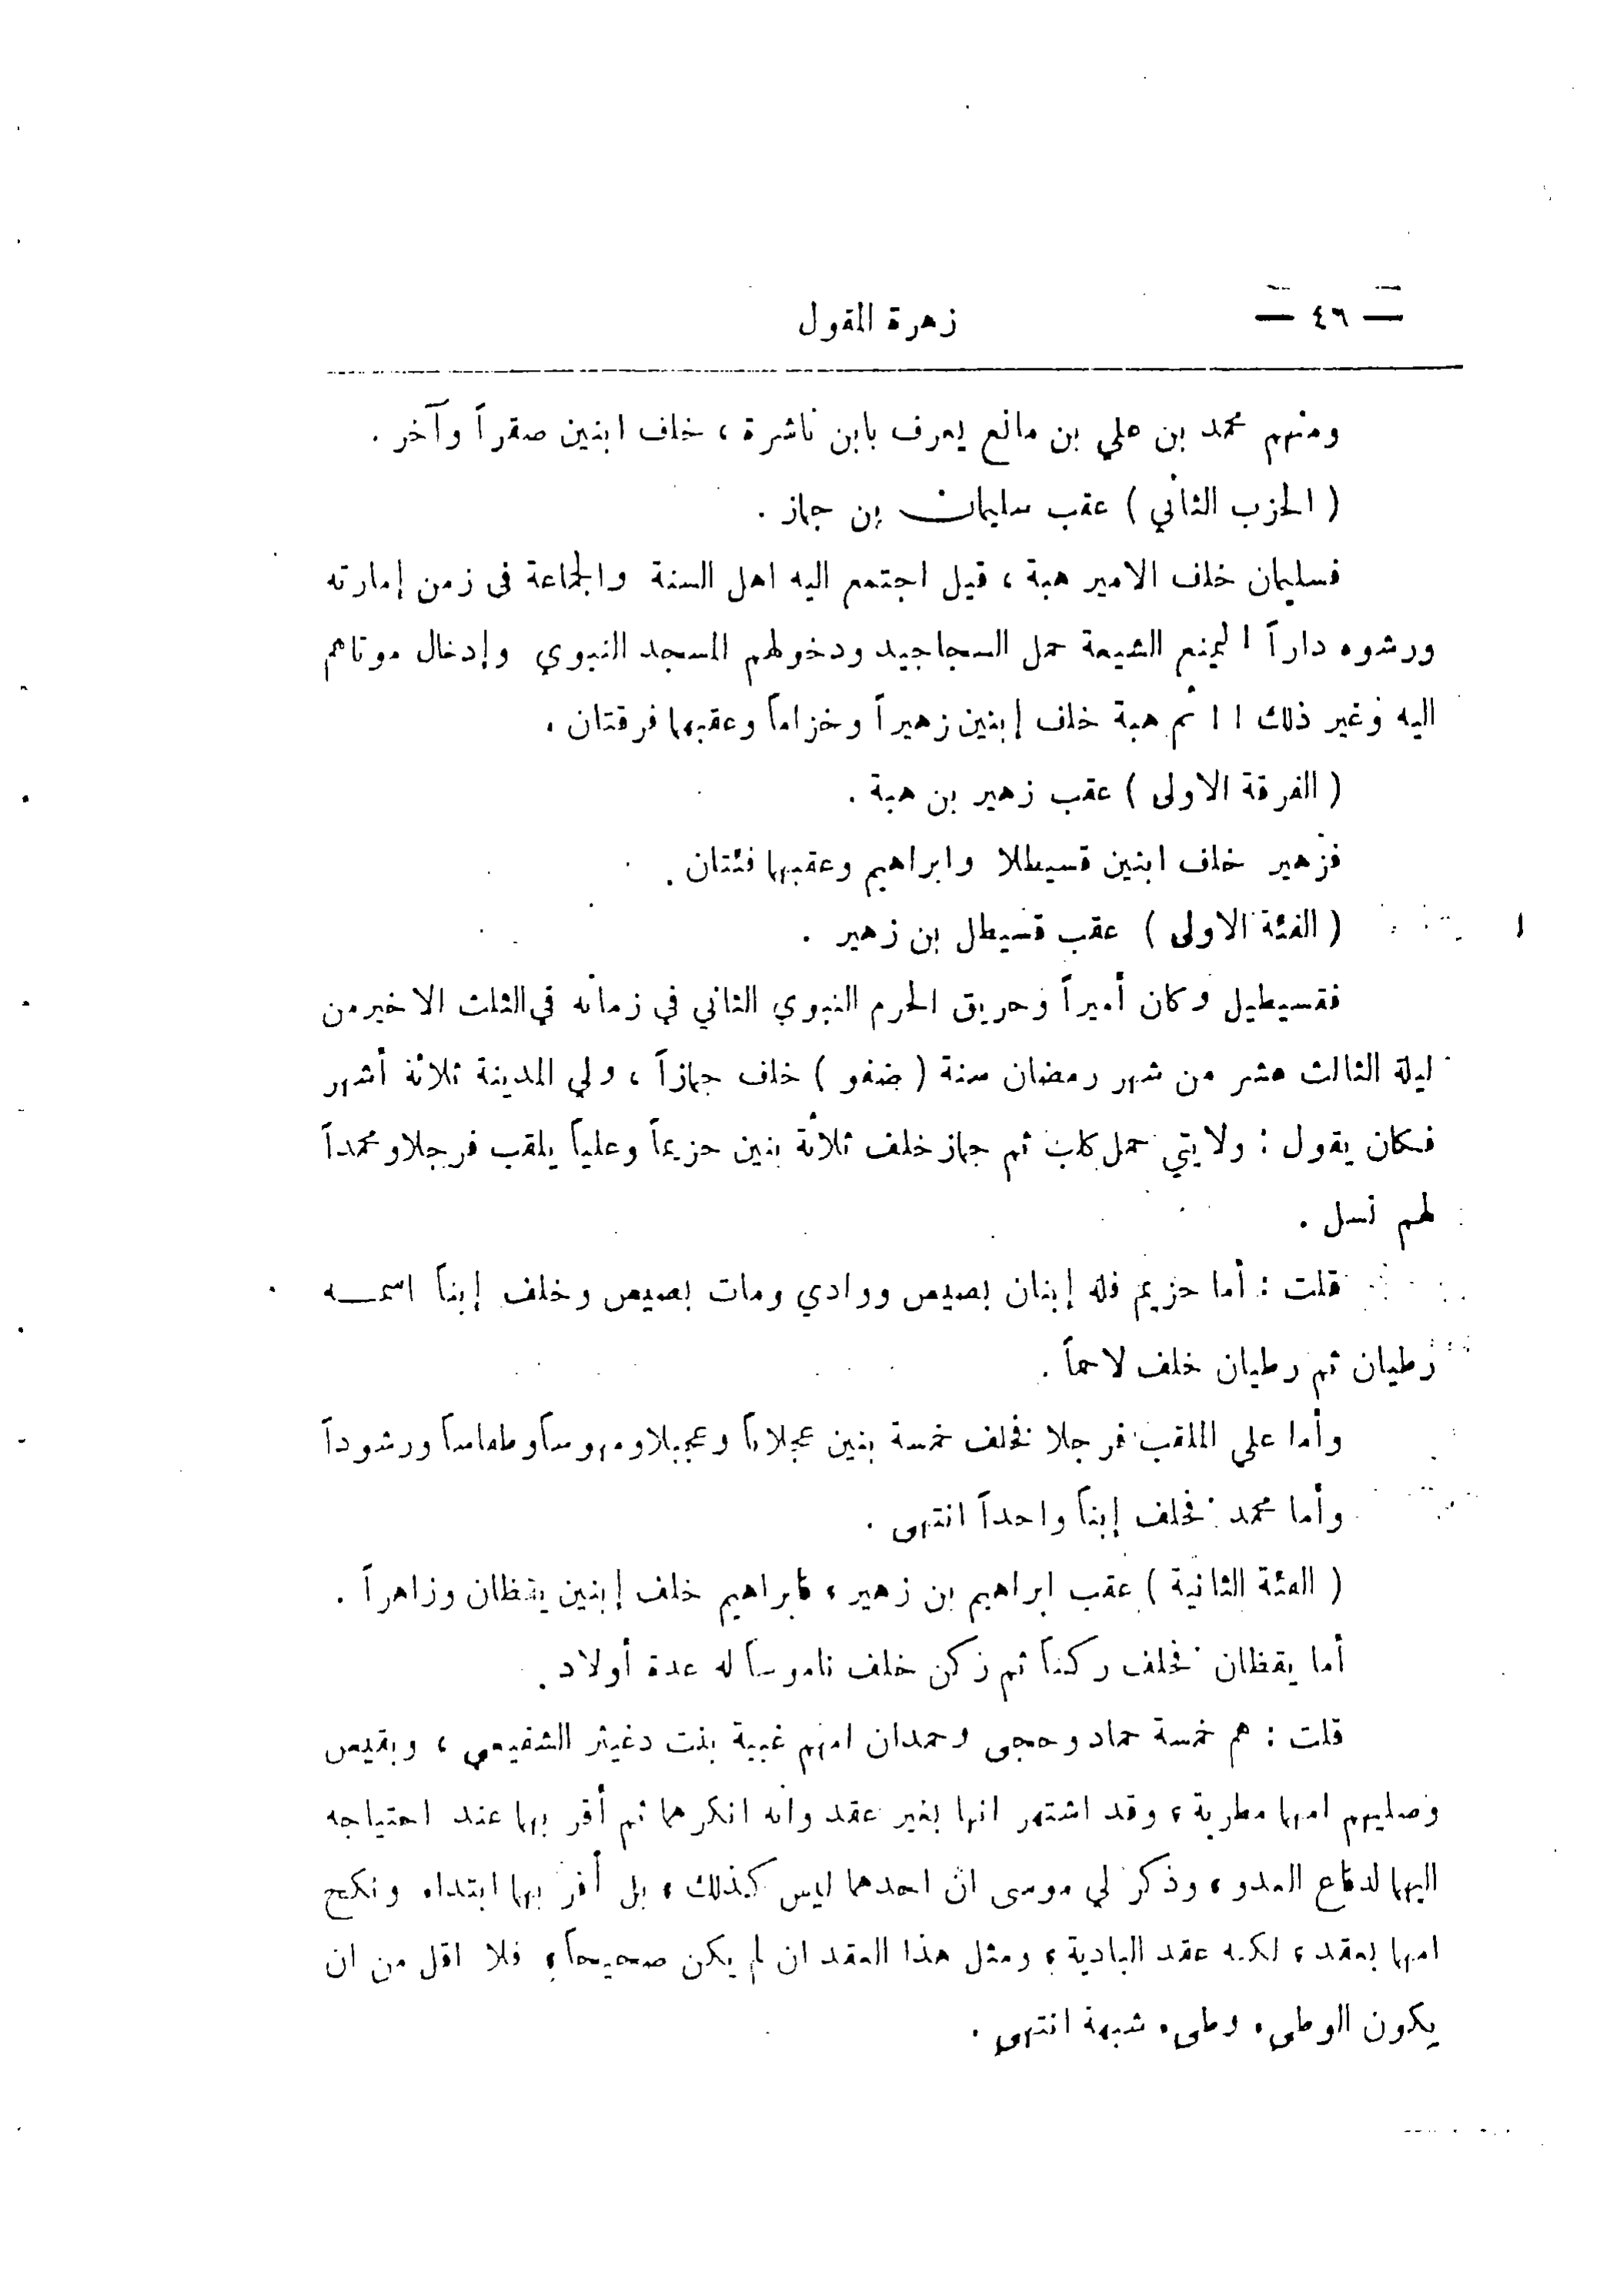 — ٤٦ — زهرة المقول
ومنهم محمد بن علي بن مانع يعرف بابن ناشرة ، خلف ابنين صقراً وآخر .
( الحزب الثاني ) عقب سليمان بن جماز .
فسليمان خلف الامير هبة ، قيل اجتمع اليه اهل السنة والجماعة فى زمن إمارته
ورشوه داراً ! ليمنع الشيعة حمل السجاجيد ودخولهم المسجد النبوي وإدخال موتاهم
اليه وغير ذلك ! ! ثم هبة خلف إبنين زهيراً وخزاماً وعقبهما فرقتان .
( الفرقة الاولى ) عقب زهير بن هبة .
فزهير خلف ابنين قسيطلا وابراهيم وعقبهما فئتان .
( الفئة الاولى ) عقب قسيطل بن زهير .
فقسيطيل وكان أميراً وحريق الحرم النبوي الثاني في زمانه في الثلث الاخير من
ليلة الثالث عشر من شهر رمضان سنة ( ضفو ) خلف جمازاً ، ولي المدينة ثلاثة أشهر
فكان يقول : ولايتي حمل كلب ثم جماز خلف ثلاثة بنين حزيماً وعلياً يلقب فرجلا ومحمداً
لهم نسل .
قلت : أما حزيم فله إبنان بصيص ووادي ومات بصيص وخلف إبناً اسمه
رطيان ثم رطيان خلف لاحماً .
وأما على الملقب فرجلا فخلف خمسة بنين عجلاناً وعجيلا ومهوساً وطعاساً ورشوداً
وأما محمد فخلف إبناً واحداً انتهى .
( الفئة الثانية ) عقب ابراهيم بن زهير ، فابراهيم خلف إبنين يقظان وزاهراً .
أما يقظان فخلف ركناً ثم ركن خلف ناموساً له عدة أولاد .
قلت : هم خمسة حماد وحجى وحمدان امهم غبية بنت دغيثر الشفيعي ، وبقيص
وصليهم امهما مطربة ، وقد اشتهر انهما بغير عقد وانه انكرهما ثم أقر بهما عند احتياجه
اليهما لدفاع العدو ، وذكر لي موسى ان احدهما ليس كذلك ، بل أقر بهما ابتداء ونكح
امهما بعقد ، لكنه عقد البادية ، ومثل هذا العقد ان لم يكن صحيحاً ، فلا اقل من ان
يكون الوطىء وطىء شبهة انتهى .